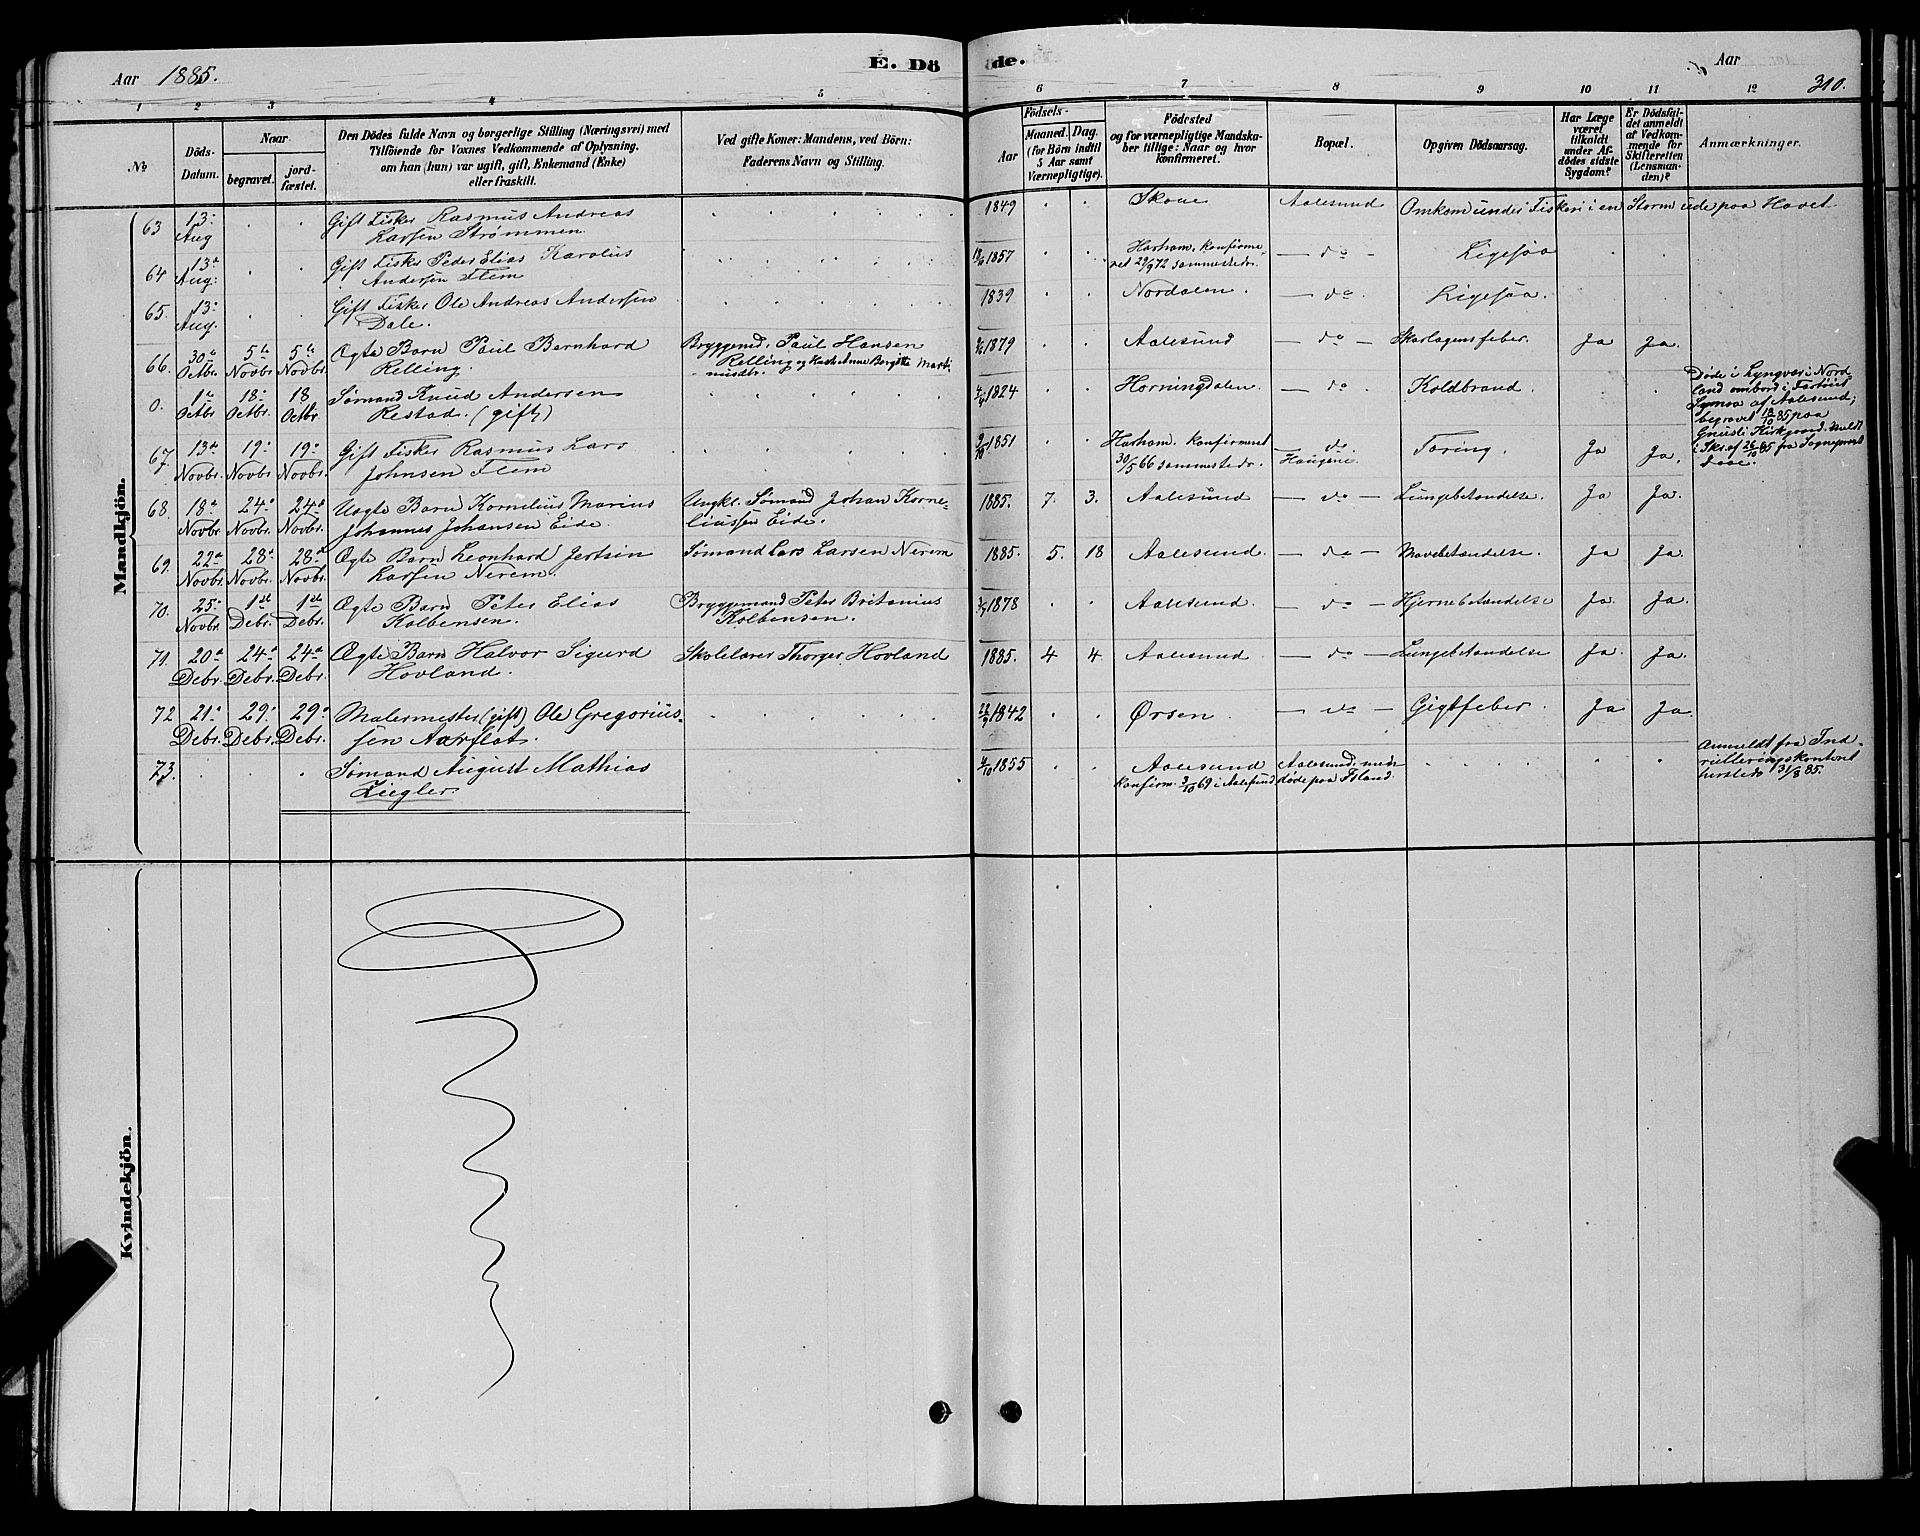 Aar 1885.
E. Döde.
Aar
310.
1 2 3 4 5 6 7 8 9 10 11 12
No
Döds-Datum.
Naar
begravet.
jord-fæstet.
Den Dödes fulde Navn og borgerlige Stilling (Næringsvei) med
Tilföiende for Voxnes Vedkommende af Oplysning,
om han (hun) var ugift, gift, Enkemand (Enke)
eller fraskilt.
Ved gifte Koner: Mandens, ved Börn:
Faderens Navn og Stilling.
Födsels-
Aar
Maaned. Dag.
(for Börn indtil
5 Aar samt
Værnepligtige).
Födested
og for værnepligtige Mandska-
ber tillige: Naar og hvor
konfirmeret.
Bopæl.
Opgiven Dödsaarsag.
Har Læge
været
tilkaldt
under Af-
dödes sidste
Sygdom?
Er Dödsfal-
det anmeldt
af Vedkom-
mende for
Skifteretten
(Lensman-
den)?
Anmærkninger.
Mandkjön.
63 13. Aug Gift Fisker Rasmus Andreas
Larsen Strømmen 1849 Skoue Aalesund Omkom under Fiskeri i en Storm ude paa Havet
64 13. Aug. Gift Fisker Peder Elias Karolus
Andersen Flem 1857 Harham, konfirme-
ret 29/9 72 sammestedr. do Ligesaa
65. 13. Aug. Gift Fisker Ole Andreas Andersen
Dale. 1839 Nordalen. do. Ligesaa.
66. 30te Octbr. 5te Novbr. 5te Novbr. Ægte Barn Paul Bernhard
Relling. Bryggemd. Paul Hansen
Relling og Hustr. Anne Bergitte Mart-
inusdtr. 1879 Aalesund do Skarlagensfeber. Ja Ja.
0. 1te Octbr. 18. Octbr. 18 Octbr. Sømand Knud Andersen
Restad. (gift) 1824 Horningdalen. do Koldbrand. Døde i Lyngvær i Nord-
land ombord i Fartøiet
af Aalesund;
begravet 18/10 85 paa
Kirkegaard. Meldt
i Skr. af 26/10 85 fra Sognepræst
Daae.
67. 13de Novbr. 19. Novbr. 19. Novbr. Gift Fisker Rasmus Lars
Johnsen Flem 9/10 1851 Harham. konfirmeret
30/5 66 sammestedr. do
Tæring. Ja Ja.
68. 18de Novbr. 24de Novbr. 24de Novbr. Uægte Barn Kornelius Marius
Johannes Johansen Eide. Ungkl. Sømand Johan Korne-
liussen Eide. 1885. 7. 3. Aalesund do Lungebetændelse. Ja Ja.
69. 22de Novbr. 28. Novbr. 28de Novbr. Ægte Barn Leonhard Jertsin
Larsen Nerem. Sømand Lars Larsen Nerem 1885. 5. 18 Aalesund. do Mavebetændelse. Ja Ja.
70. 25. Novbr. 1ste Debr. 1ste Debr. Ægte Barn Peter Elias
Kolbensen. Bryggemand Peter Britanius
Kolbensen. 1878 Aalesund. do Hjernebetændelse Ja Ja.
71. 20de Debr. 24de Debr. 24de Debr. Ægte Barn Halvor Sigurd
Hovland. Skolelærer Thorger Hovland 1885. 4 4 Aalesund do Lungebetændelse Ja. Ja.
72 21. Debr. 29. Debr. 29. Debr. Malermester (gift) Ole Gregorius-
sen Aarflot. 1842 Ørsen. do Gigtfeber. Ja Ja.
73. Sømand August Mathias
Ziegler. 1855 Aalesund
konfirm. 3/10 69 i Aalesund Aalesund, men
døde paa Island Anmeldt fra Ind-
rulleringskontoret
hersteds 31/8 85.
Kvindekjön.